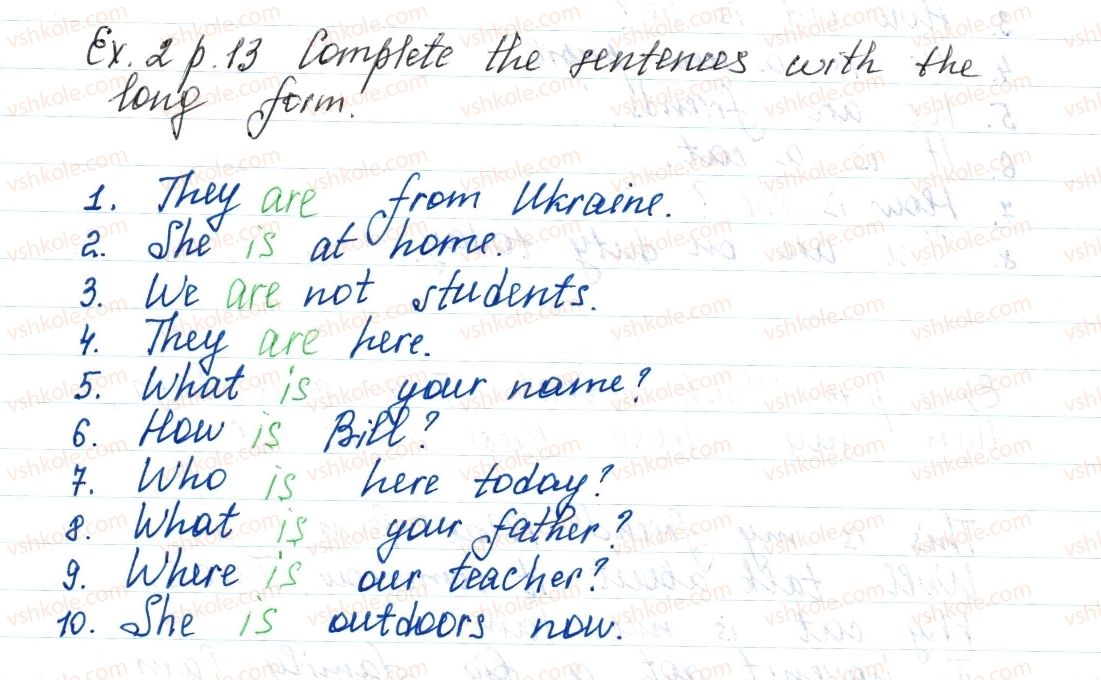 Ex. 2 p. 13 Complete the sentences with the
long form.
1. They are from Ukraine.
2. She is at home.
3. We are not students.
4. They are here.
5. What is your name?
6. How is Bill?
7. Who is here today?
8. What is your father?
9. Where is our teacher?
10. She is outdoors now.
vshkole.com